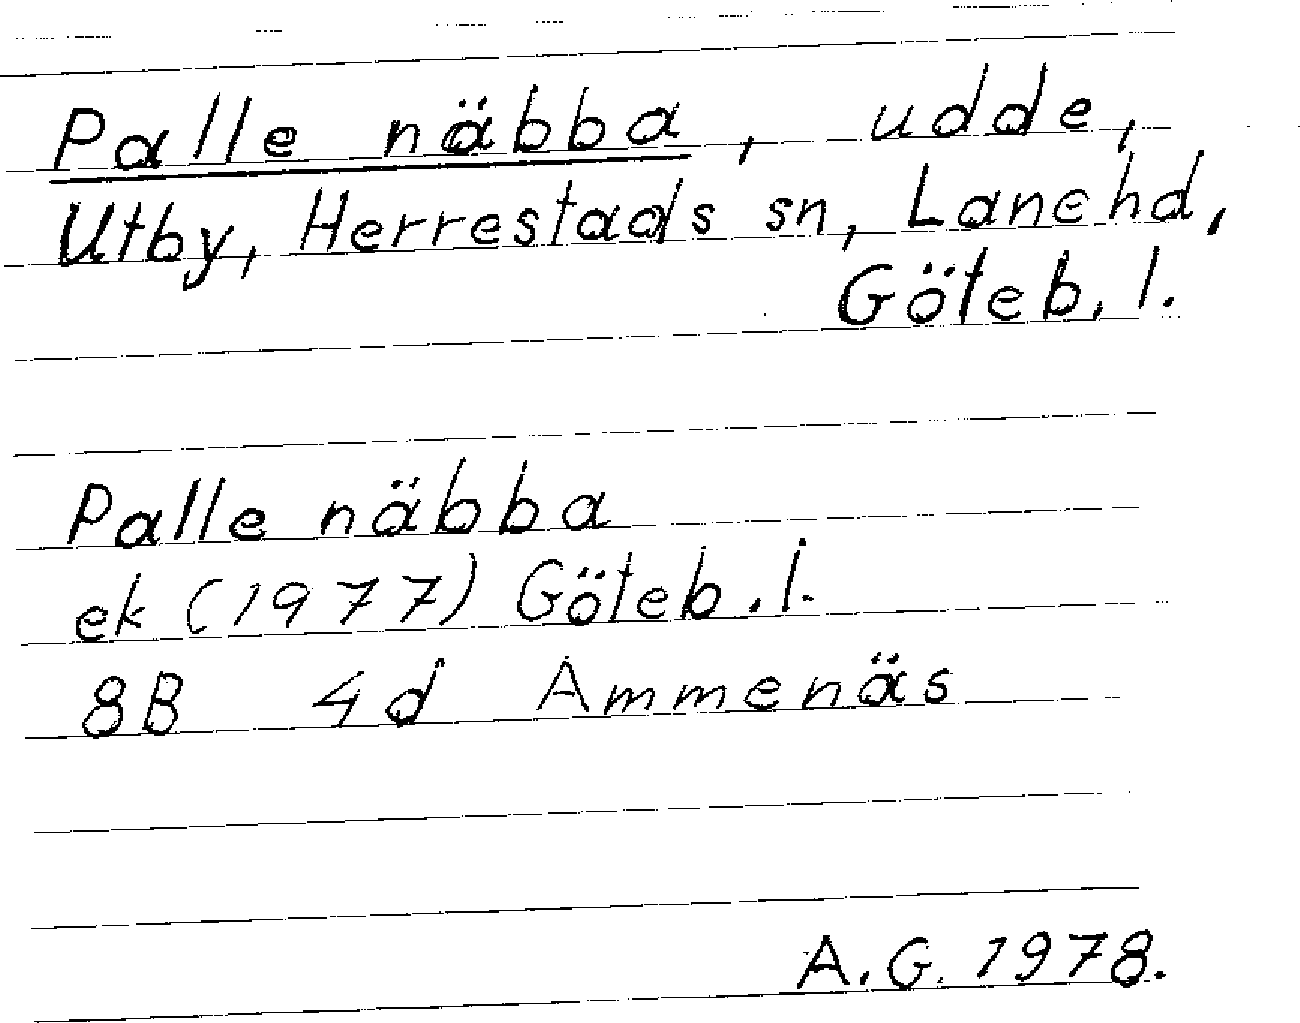 Palle näbba, udde,
Utby, Herrestads sn, Lane hd,
Göteb. l.
Palle näbba
ek (1977) Göteb. l.
8B 4d Ammenäs
A.G. 1978.